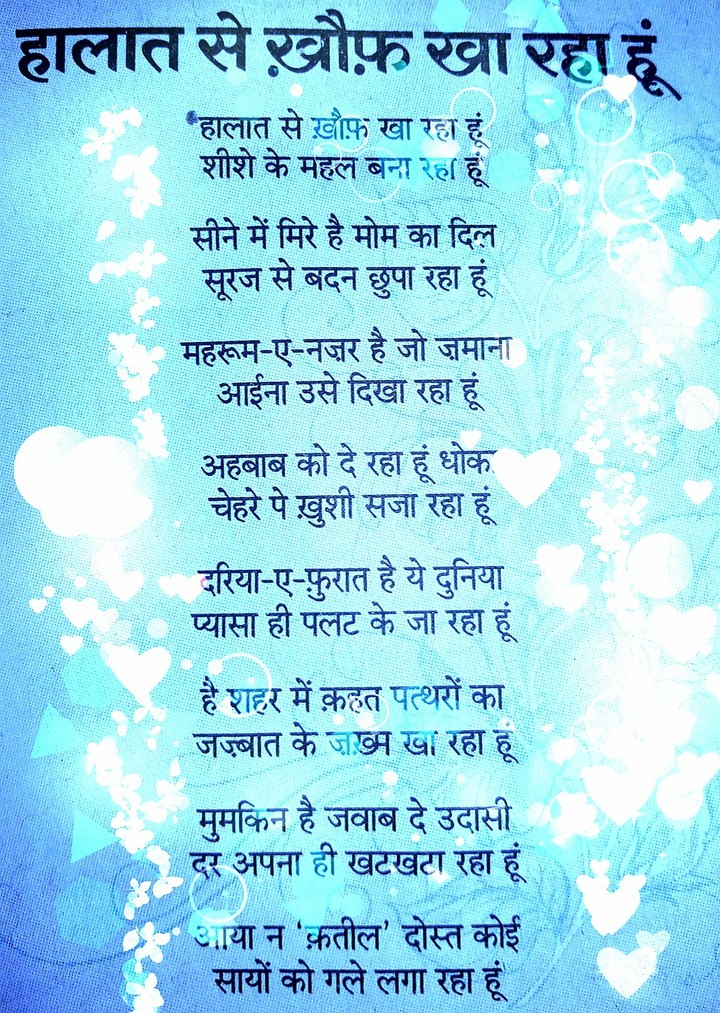 हालात से ख़ौफ़ खा रहा हूं
हालात से ख़ौफ़ खा रहा हूं
शीशे के महल बना रहा हूं
सीने में मिरे है मोम का दिल
सूरज से बदन छुपा रहा हूं
महरूम-ए-नज़र है जो ज़माना
आईना उसे दिखा रहा हूं
अहबाब को दे रहा हूं धोका
चेहरे पे ख़ुशी सजा रहा हूं
दरिया-ए-फ़ुरात है ये दुनिया
प्यासा ही पलट के जा रहा हूं
है शहर में क़हत पत्थरों का
जज़्बात के ज़ख़्म खा रहा हूं
मुमकिन है जवाब दे उदासी
दर अपना ही खटखटा रहा हूं
आया न ‘क़तील’ दोस्त कोई
सायों को गले लगा रहा हूं